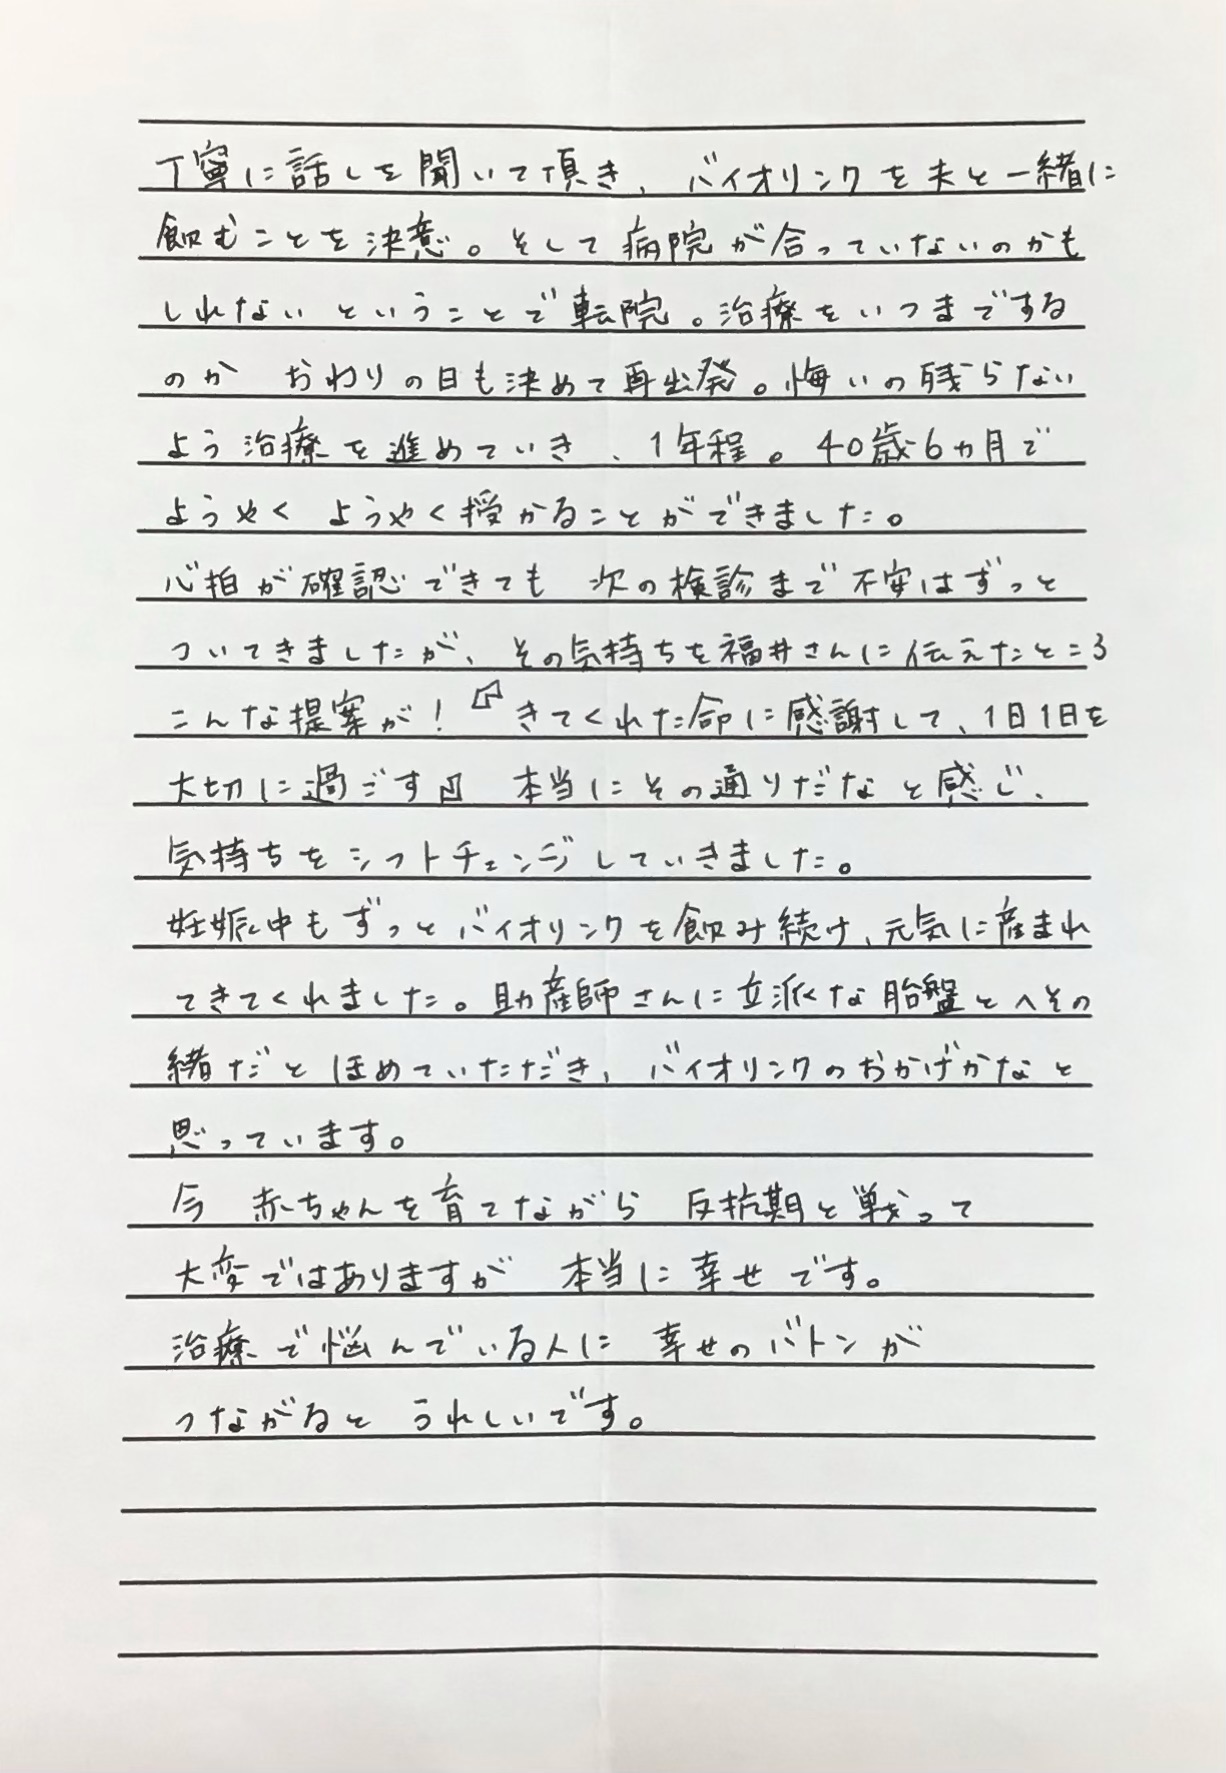 丁寧に話しを聞いて頂き、バイオリンクを夫と一緒に
飲むことを決意。そして病院が合っていないのかも
しれないということで転院。治療をいつまでする
のか おわりの日も決めて再出発。悔いの残らない
よう治療を進めていき、1年程。40歳6ヵ月で
ようやく ようやく授かることができました。
心拍が確認できても 次の検診まで不安はずっと
ついてきましたが、その気持ちを福井さんに伝えたところ
こんな提案が!『きてくれた命に感謝して、1日1日を
大切に過ごす』 本当にその通りだなと感じ、
気持ちをシフトチェンジしていきました。
妊娠中もずっとバイオリンクを飲み続け、元気に産まれ
てきてくれました。助産師さんに立派な胎盤とへその
緒だとほめていただき、バイオリンクのおかげかなと
思っています。
今 赤ちゃんを育てながら 反抗期と戦って
大変ではありますが 本当に幸せです。
治療で悩んでいる人に 幸せのバトンが
つながると うれしいです。